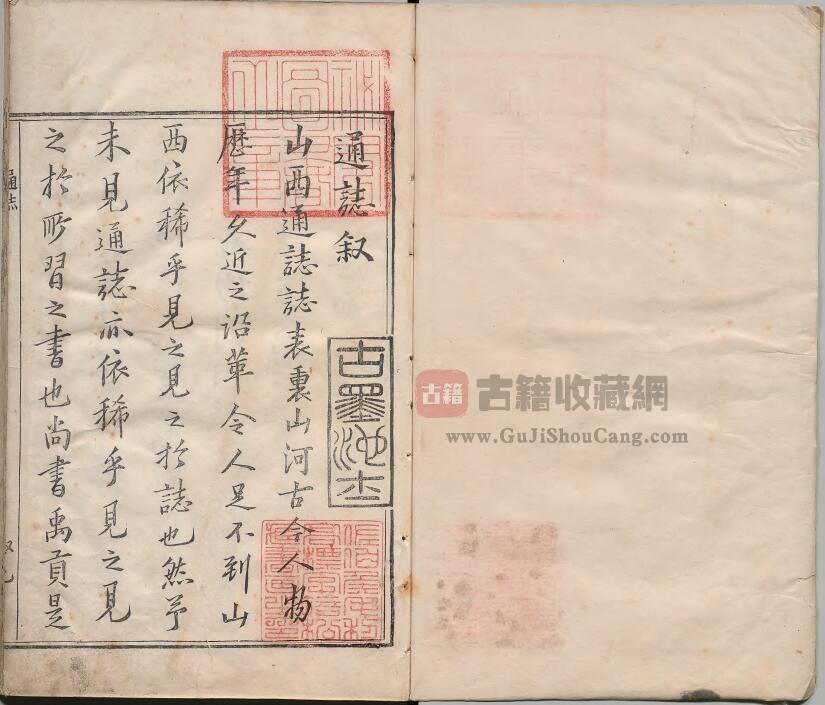 通誌叙
山西通誌誌表裏山河古今人物
歷年久近之沿革令人足不到山
西依稀乎見之見之於誌也然予
未見通誌亦依稀乎見之見
之於所習之書也尚書禹貢是
通誌
古墨池
古籍
古籍收藏網
www.GuJiShouCang.com